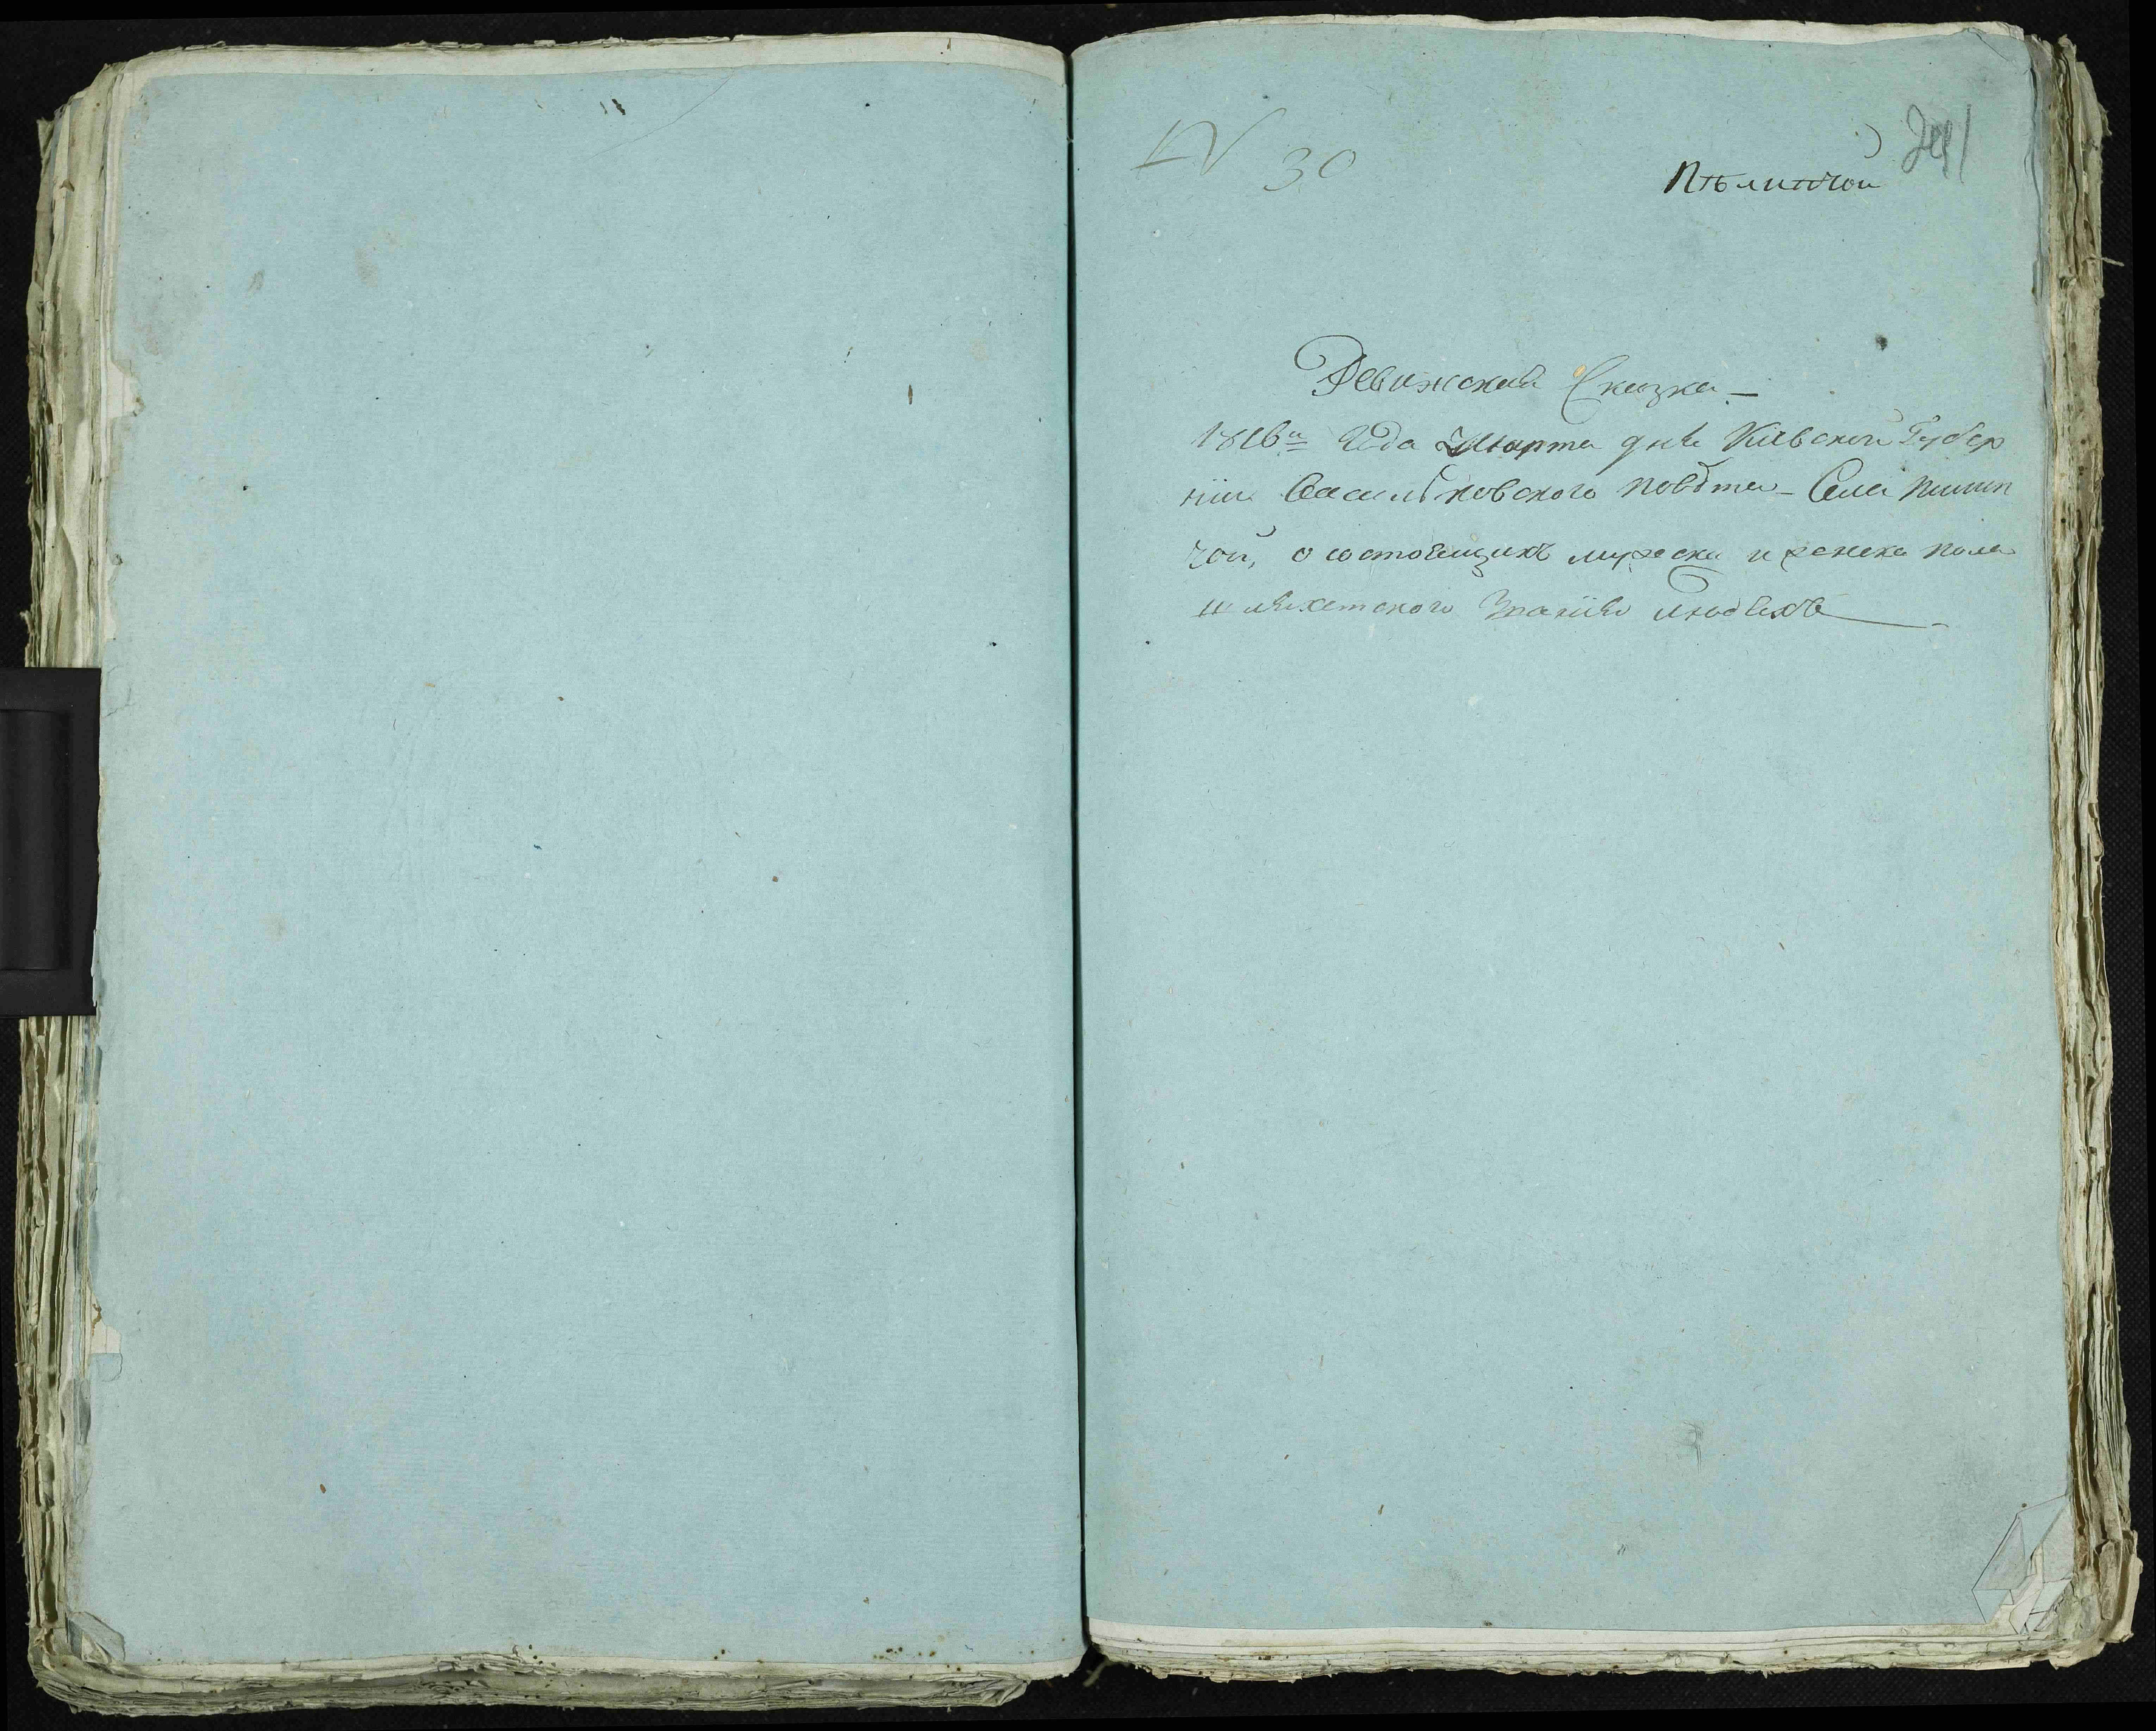 N 30
241
Пѣлипчой
Ревижская Сказка —
1816го Года Марта дня Киевской Губер
нии Васильковского повѣта — Села Пилип
чой, о состоящихъ мужеска и женска пола
шляхетского Званія людехъ —